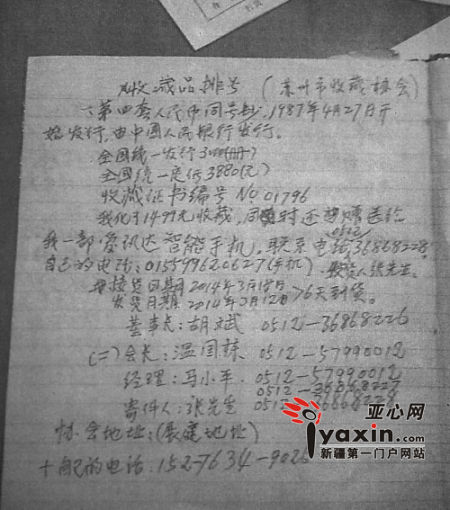 收藏品排号 (苏州市收藏协会)
一、第四套人民币同号钞,1987年4月27日开
始发行,由中国人民银行发行。
全国统一发行3000(册)
全国统一定价3880(元)
收藏证书编号 NO 01796
我化了1499元收藏,同时还赠送给
我一部 智能手机,联系电话,0512/36868228,
自己的电话:015599620627(手机) 张先生。
接货日期2014年3月18日
发货日期2014年3月12日>6天到货。
董事长:胡斌 0512-36868226
(二)会长:温国栋 0512-57990012
经理:马小平 0512-57990012
0512-36868227
寄件人:张先生 0512-36868228
协会地址:( 地址)
的电话:152-7634-902
亚心网
iyaxin.com
新疆第一门户网站